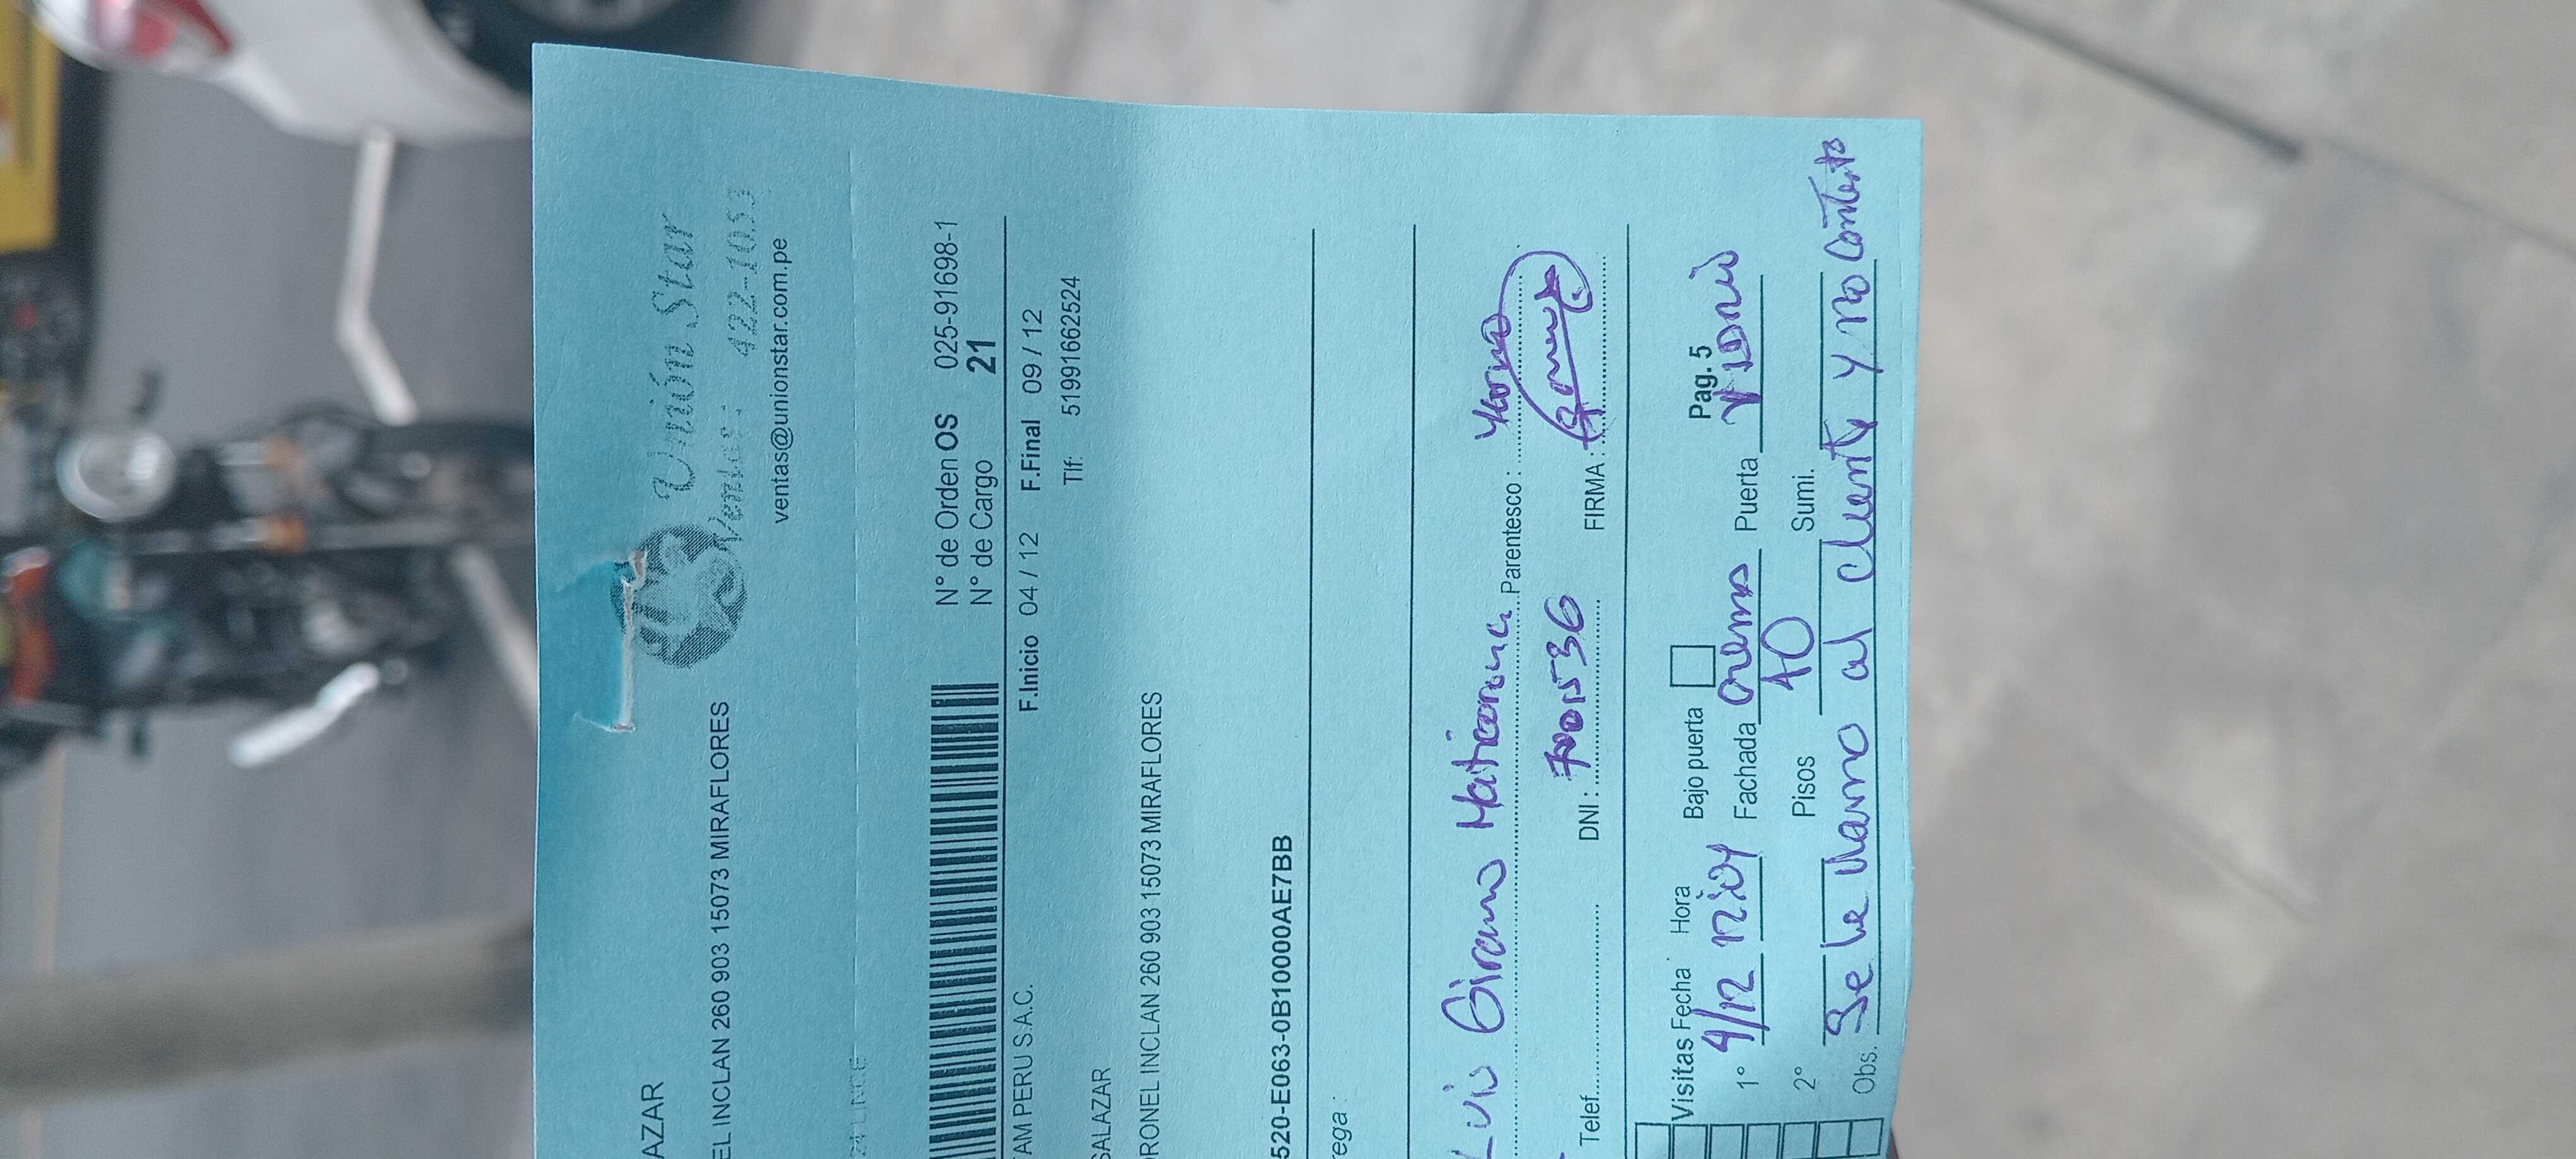 AZAR
EL INCLAN 260 903 15073 MIRAFLORES
Unión Star
Ventas: 422-1053
ventas@unionstar.com.pe
24 LINCE
N° de Orden OS 025-91698-1
N° de Cargo 21
AM PERU S.A.C. F.Inicio 04 / 12 F.Final 09 / 12
SALAZAR Tlf: 51991662524
RONEL INCLAN 260 903 15073 MIRAFLORES
520-E063-0B10000AE7BB
rega :
Luis Girano Maticorena Parentesco :
Telef. DNI : 7001536 FIRMA :
Visitas Fecha Hora Bajo puerta Pag. 5
1° 4/12 Fachada Crema Puerta Vidrio
2° Pisos 10 Sumi.
Obs. Se le llamo al cliente y no contesto